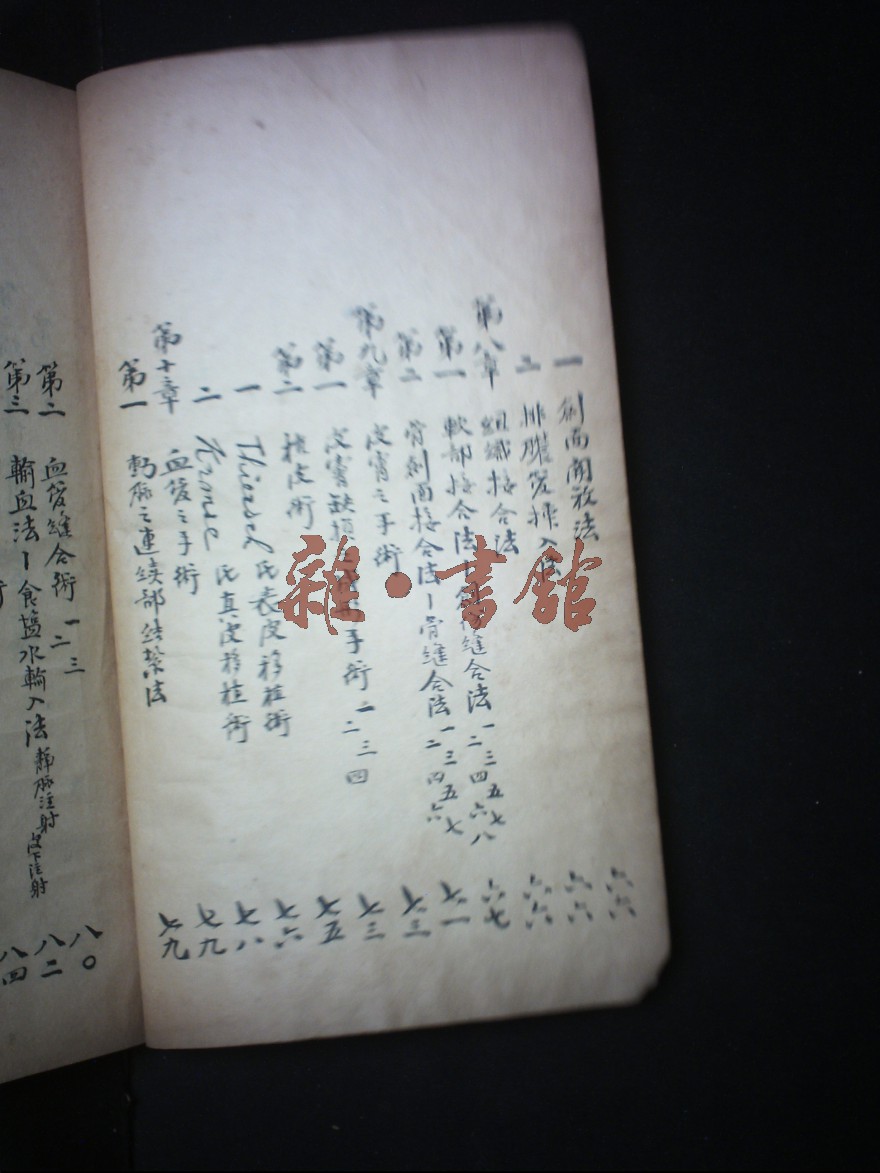 一 創面開放法 六六
二 排膿管挿入法 六六
第八章 組織接合法 六六
第一 軟部接合法 創傷縫合法 一二三四五六七八 六七
第二 骨創面接合法ー骨縫合法 一二三四五六七 七一
第九章 皮膚之手術 七三
第一 皮膚缺損 手術 一二三四 七三
第二 植皮術 七五
一 Thiersch氏表皮移植術 七六
二 Krause氏真皮移植術 七八
第十章 血管之手術 七九
第一 動脉之連續部結紮法 七九
第二 血管縫合術 一二三 八〇
第三 輸血法ー食塩水輸入法 静脉注射 皮下注射 八二
術 八四
雜·書館